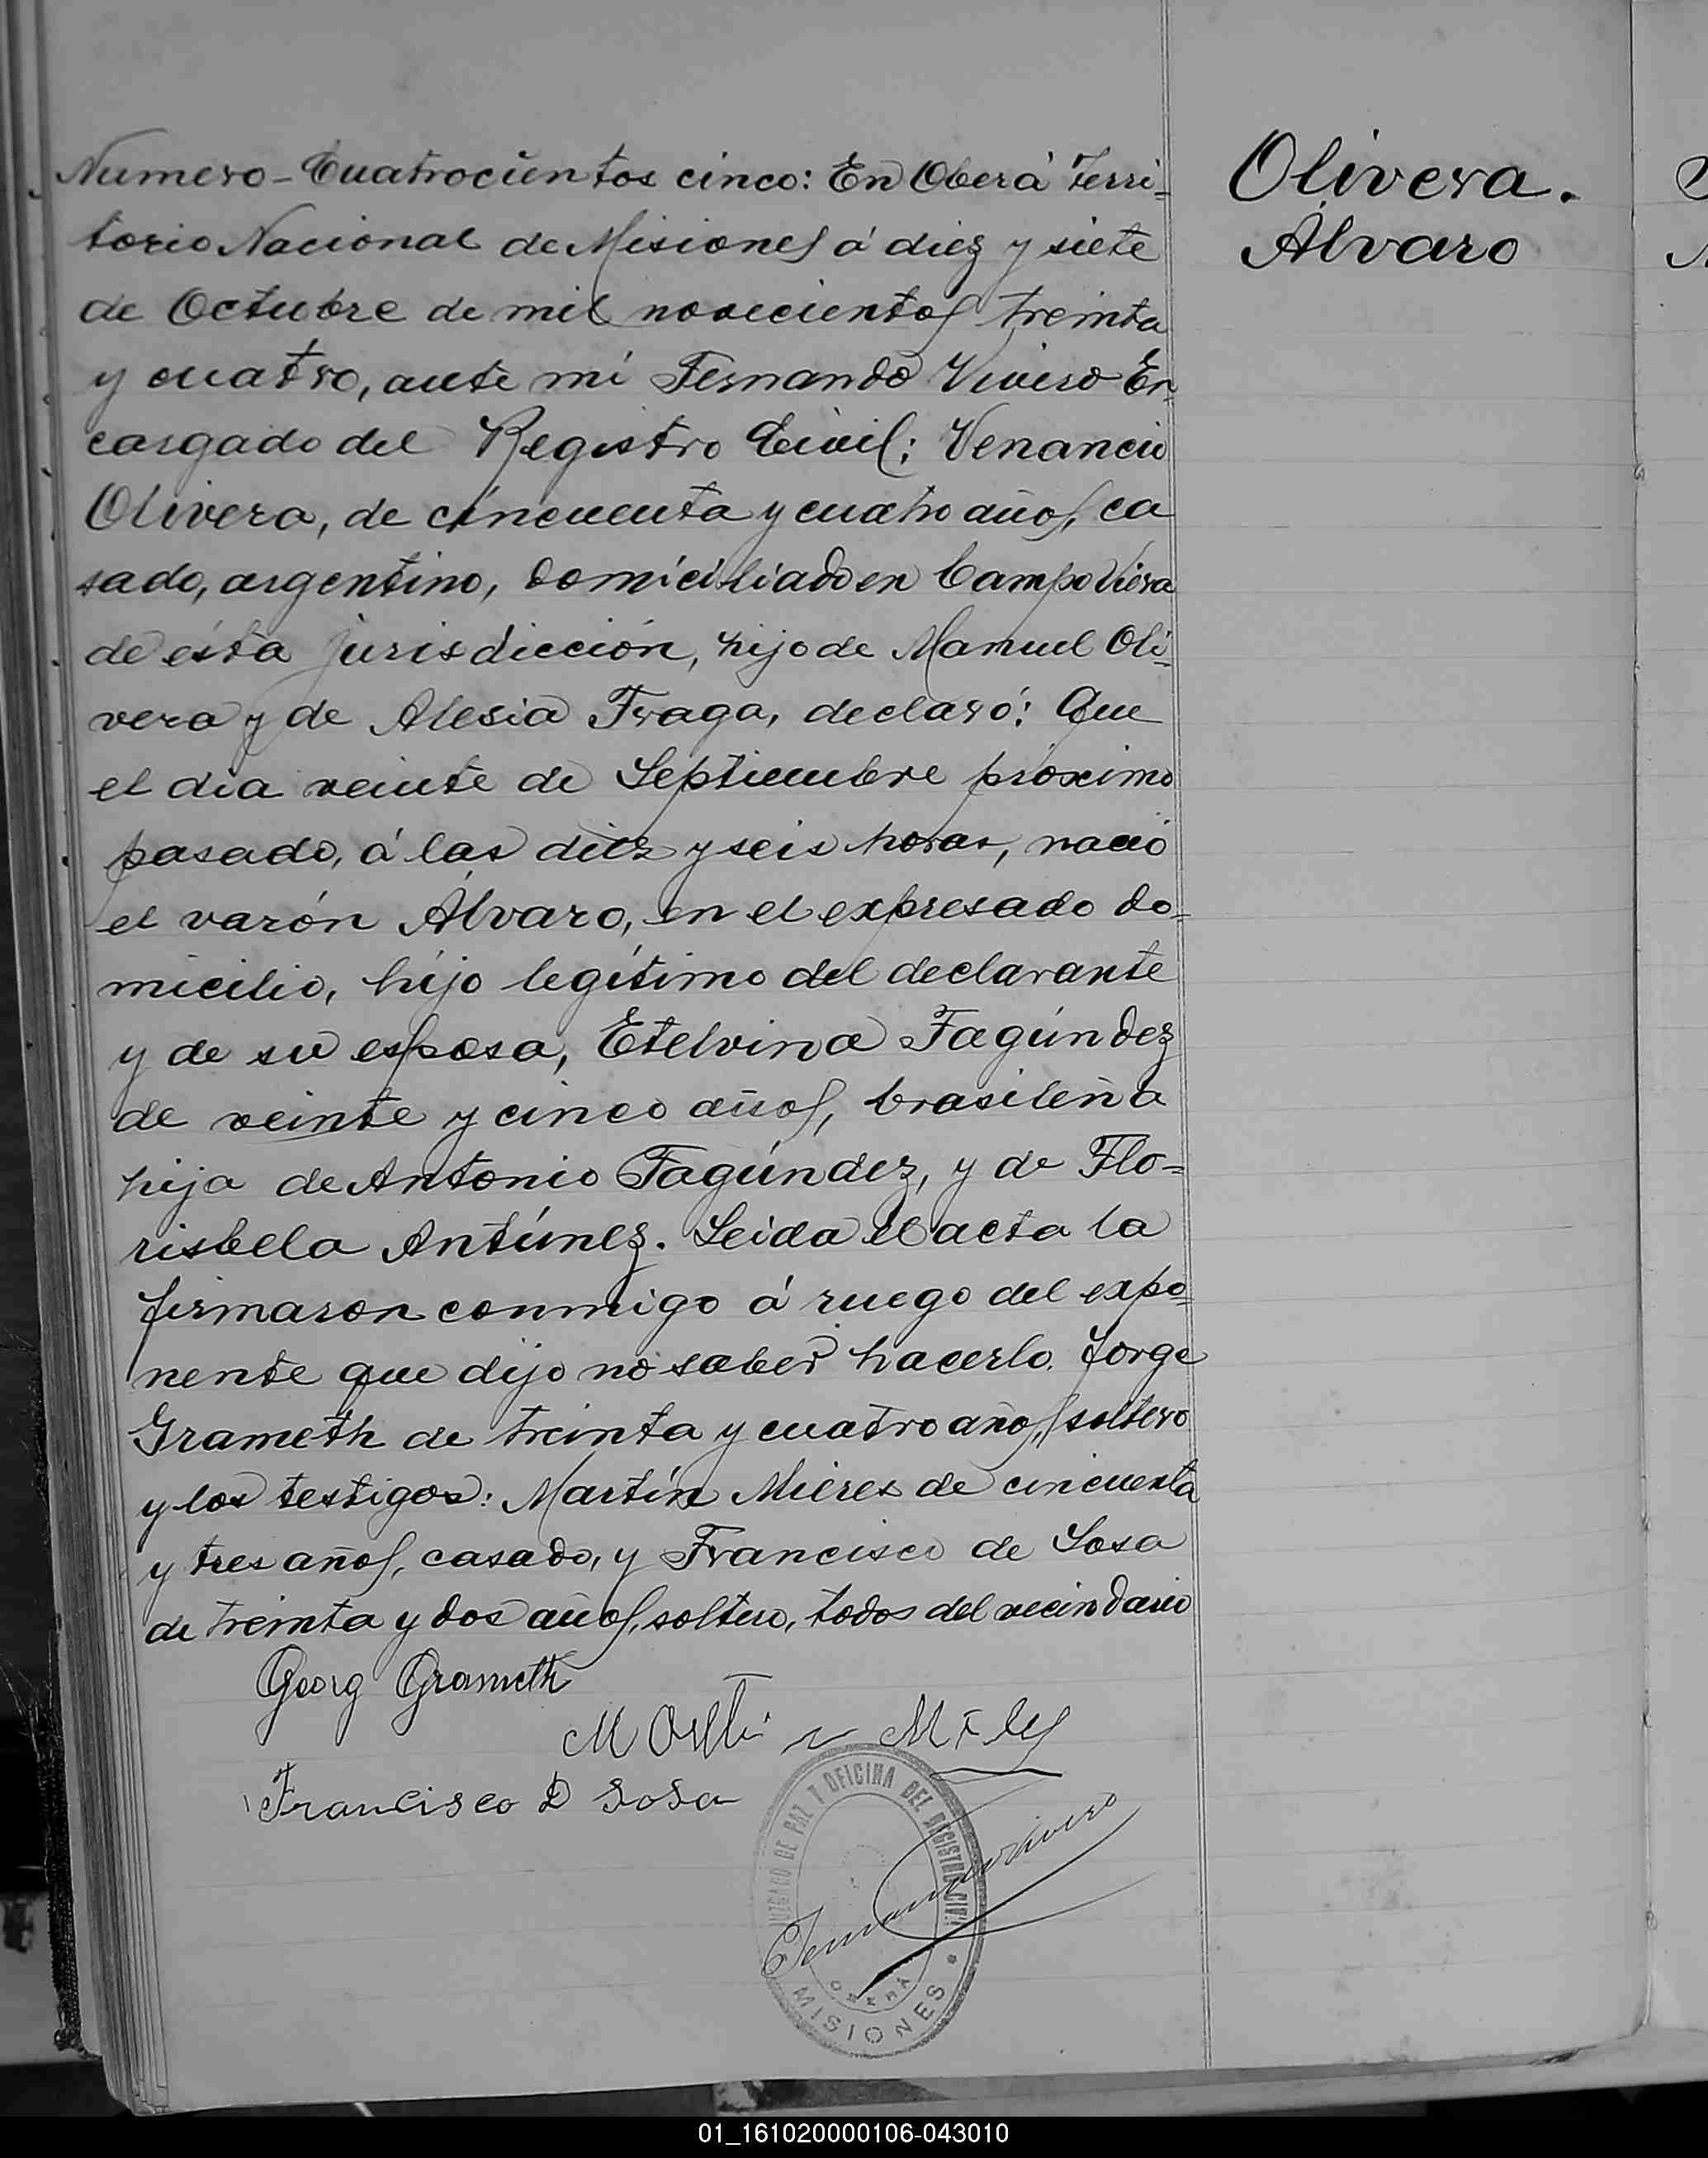 Numero-Cuatrocientos cinco: En Oberá Terri-
torio Nacional de Misiones á diez y siete
de Octubre de mil novecientos treinta
y cuatro, ante mí Fernando Vivero En-
cargado del Registro Civil; Venancio
Olivera, de cincuenta y cuatro años, ca
sado, argentino, domiciliado en Campo Viera
de ésta jurisdicción, hijo de Manuel Oli-
vera y de Alesia Fraga, declaró: Que
el día veinte de Septiembre próximo
pasado, á las diez y seis horas, nació
el varón Álvaro, en el expresado do-
micilio, hijo legítimo del declarante
y de su esposa, Etelvina Fagúndez
de veinte y cinco años, brasileña
hija de Antonio Fagúndez, y de Flo-
risbela Antúnez. Leida el acta la
firmaron conmigo á ruego del expo-
nente que dijo no saber hacerlo. Jorge
Grameth de treinta y cuatro años, soltero
y los testigos: Martín Mieres de cincuenta
y tres años, casado, y Francisco de Sosa
de treinta y dos años, soltero, todos del vecindario
Olivera.
Álvaro
Georg Grameth
Francisco D Sosa
JUZGADO DE PAZ Y OFICINA DEL REGISTRO CIVIL
OBERÁ
MISIONES
01_161020000106-043010